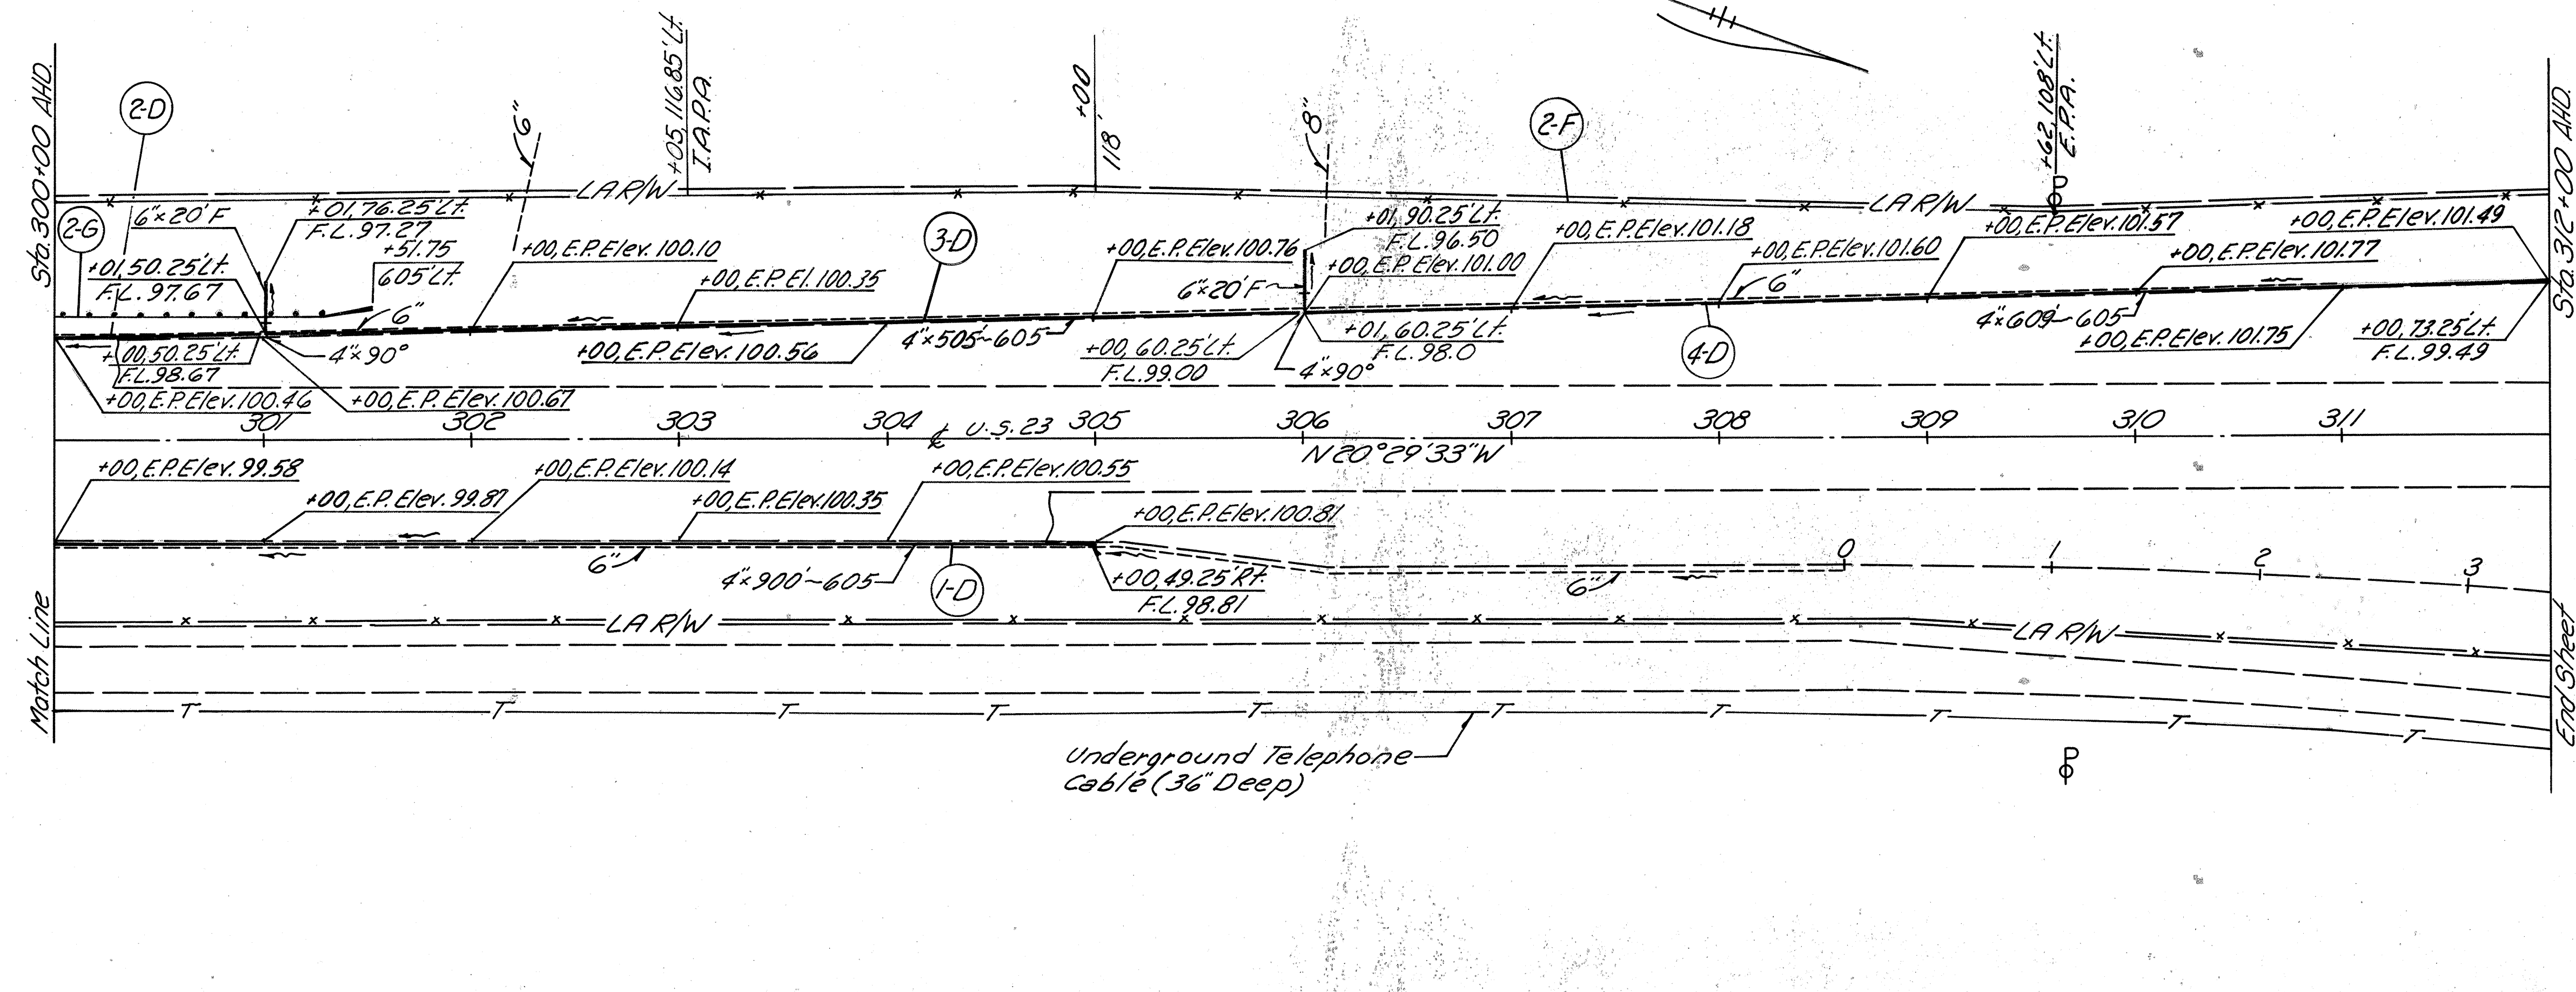 Sta. 300+00 AHD.
Match Line
2-D
6"
+05, 116.85' Lt.
I.A.P.A.
+00
118'
8"
2-F
+62, 108' Lt.
E.P.A.
P
Sta. 312+00 AHD.
End Sheet
LA R/W
LA R/W
2-G
6"x20' F
+01, 76.25' Lt.
F.L. 97.27
+51.75
605' Lt.
+01, 50.25' Lt.
F.L. 97.67
6"
+00, E.P. Elev. 100.10
+00, E.P. El. 100.35
3-D
+00, E.P. Elev. 100.76
+01, 90.25' Lt.
F.L. 96.50
+00, E.P. Elev. 101.00
6"x20' F
+00, E.P. Elev. 101.18
+00, E.P. Elev. 101.60
6"
+00, E.P. Elev. 101.57
+00, E.P. Elev. 101.77
+00, E.P. Elev. 101.49
+00, 50.25' Lt.
F.L. 98.67
4"x90°
+00, E.P. Elev. 100.56
4"x505'~605
+00, 60.25' Lt.
F.L. 99.00
4"x90°
+01, 60.25' Lt.
F.L. 98.0
4-D
4"x609'~605
+00, E.P. Elev. 101.75
+00, 73.25' Lt.
F.L. 99.49
+00, E.P. Elev. 100.46
+00, E.P. Elev. 100.67
301 302 303 304 ℄ U.S. 23 305 306 307 308 309 310 311
N 20° 29' 33" W
+00, E.P. Elev. 99.58
+00, E.P. Elev. 99.87
+00, E.P. Elev. 100.14
+00, E.P. Elev. 100.35
+00, E.P. Elev. 100.55
+00, E.P. Elev. 100.81
6"
4"x900'~605
1-D
+00, 49.25' Rt.
F.L. 98.81
6"
0 1 2 3
LA R/W
LA R/W
T T T T T T T T T T
Underground Telephone
Cable (36" Deep)
P